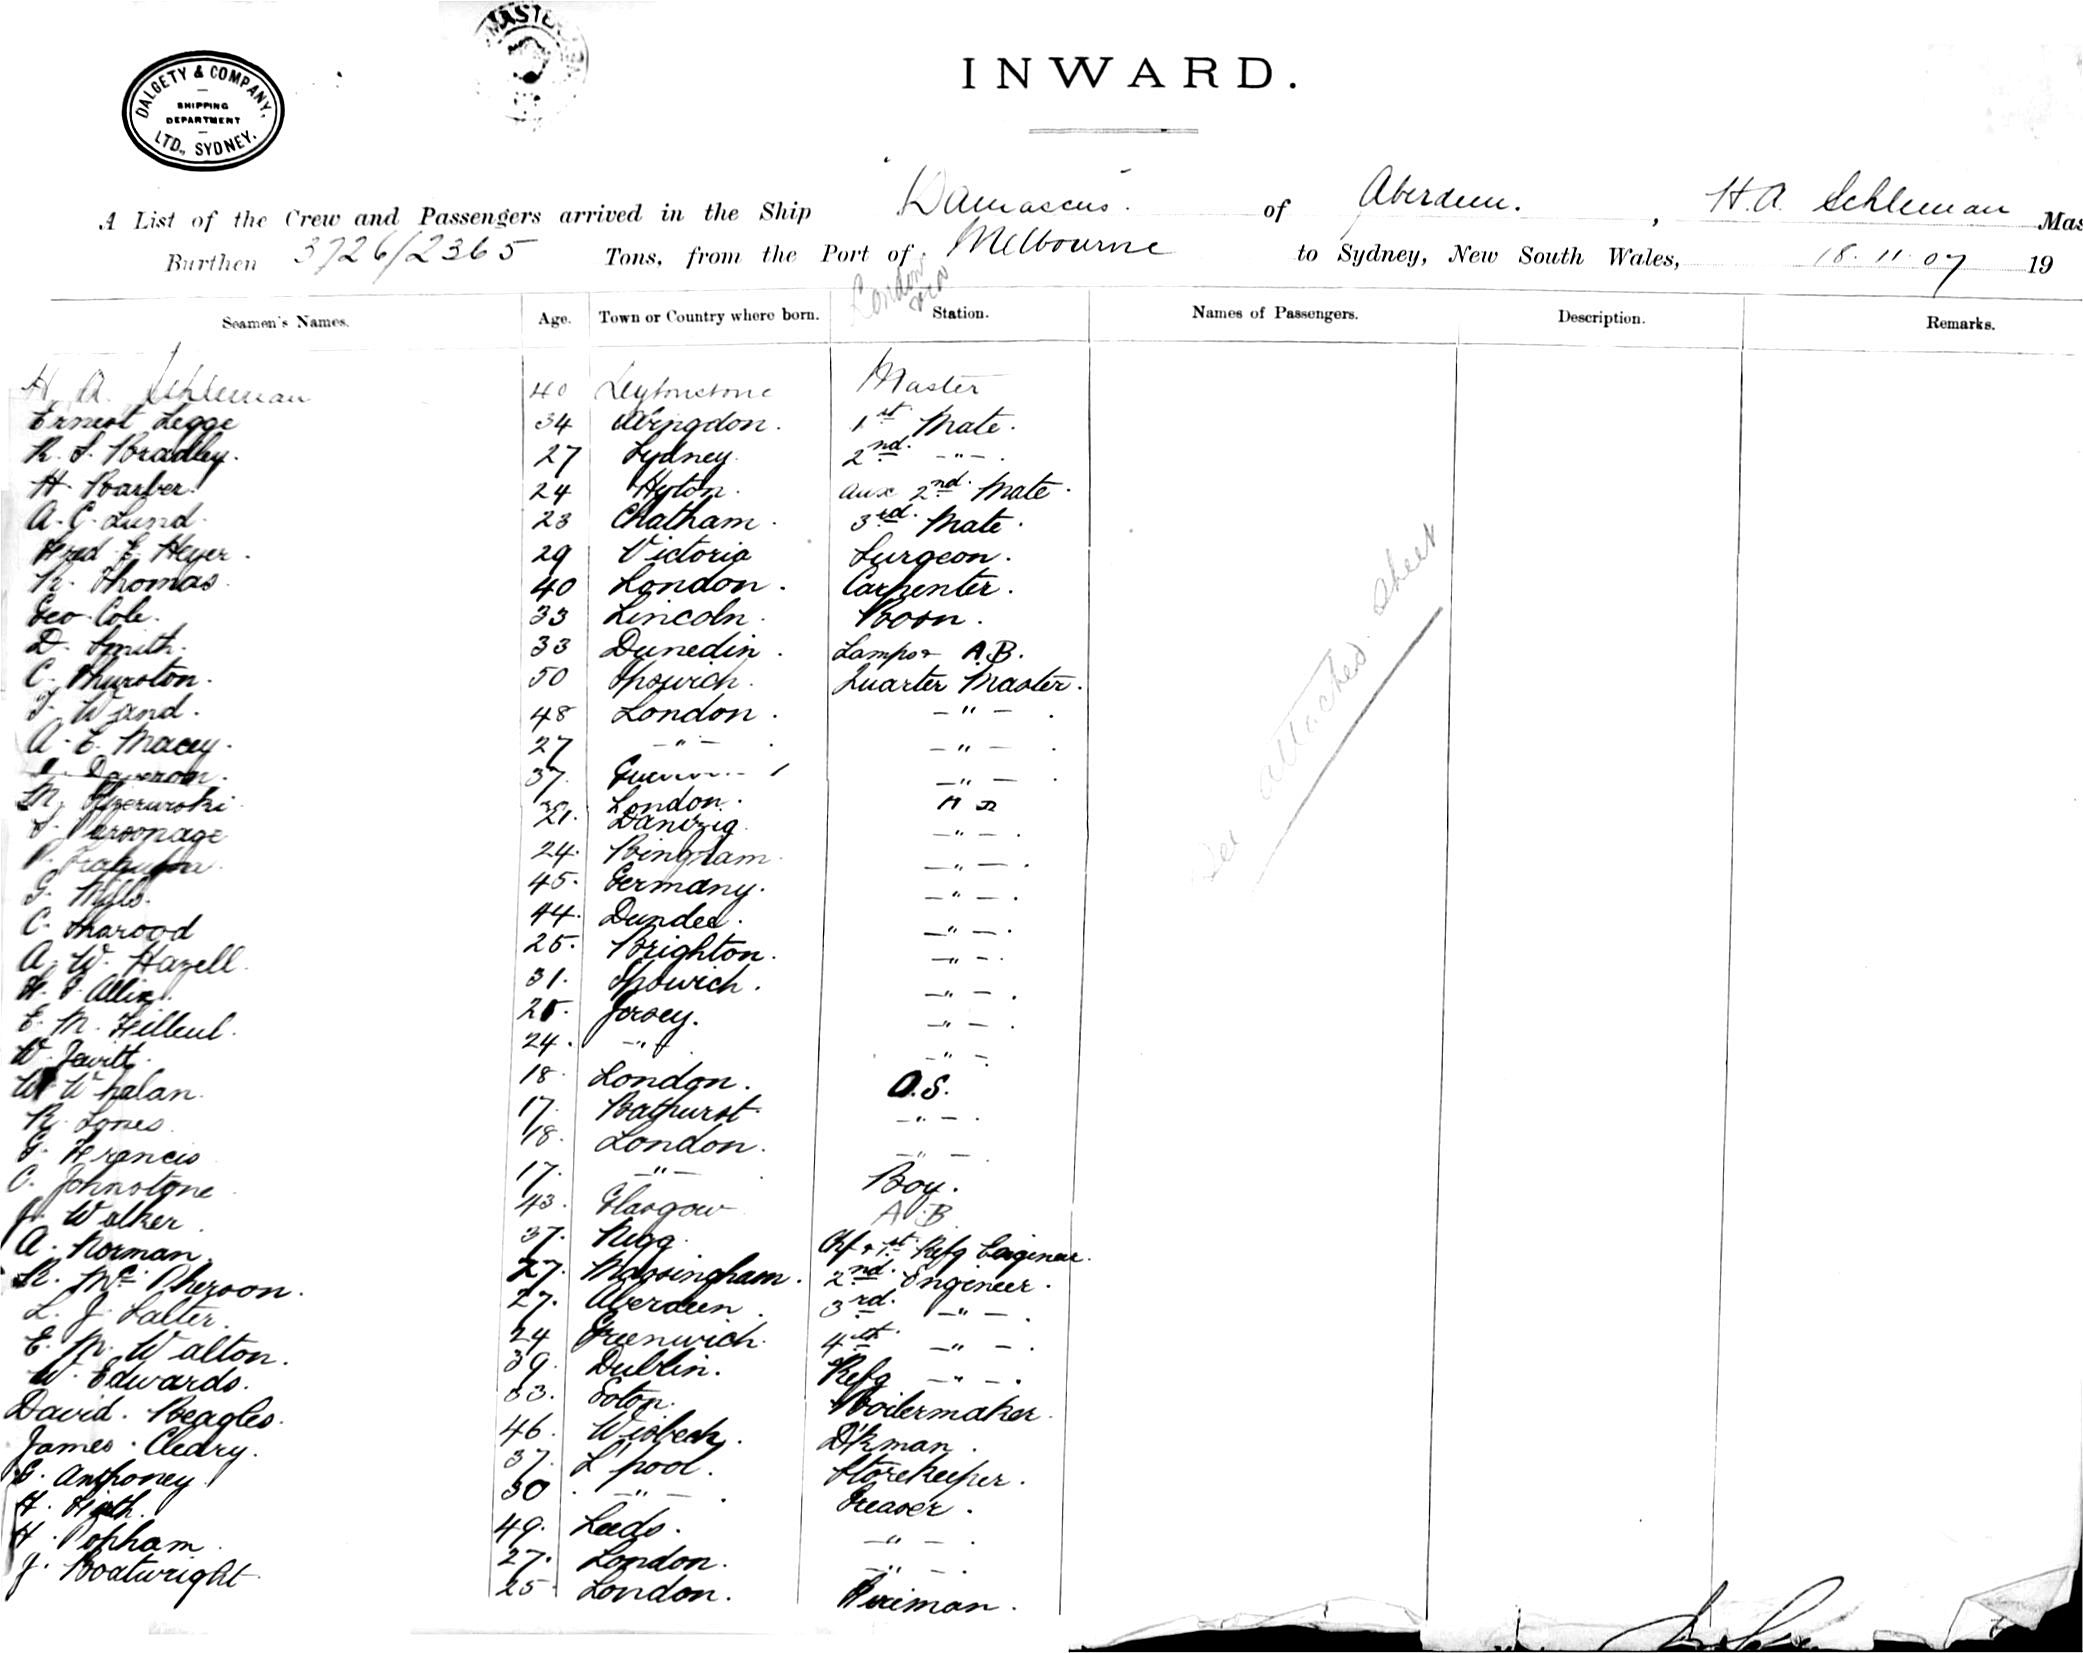 DALGETY & COMPANY,
SHIPPING
DEPARTMENT
LTD., SYDNEY.
INWARD.
A List of the Crew and Passengers arrived in the Ship "Damascus" of Aberdeen. , H. A. Schleman Mas
Burthen 3726/2365 Tons, from the Port of Melbourne to Sydney, New South Wales, 18. 11. 07 19
London
Seamen's Names. Age. Town or Country where born. Station. Names of Passengers. Description. Remarks.
H. A. Schleman 40 Leytonstone Master
Ernest Legge 34 Abingdon. 1st Mate.
R. S. Bradley. 27 Sydney. 2nd. -"-.
H. Barber. 24 Hyton. Aux 2nd. Mate.
A. C. Lund. 23 Chatham. 3rd. Mate.
Fred. E. Heyer. 29 Victoria Surgeon.
R. Thomas. 40 London. Carpenter.
Geo. Cole. 33 Lincoln. Bosn.
D. Smith. 33 Dunedin. Lamps & A.B.
C. Thurston. 50 Ipswich. Quarter Master.
T. Wand. 48 London. -"-.
A. E. Macey. 27 -"-. -"-.
37. -"-.
M. London.
S. Parsonage 21. Dantzig. -"-.
24. Bingham. -"-.
G. Mills. 45. Germany. -"-.
C. Sharood 44. Dundee. -"-.
A. W. Hazell. 25. Brighton. -"-.
H. S. Allix. 31. Ipswich. -"-.
E. M. Filleul. 25. Jersey. -"-.
W. Jewitt. 24. -"- -"-.
W. Whalan. 18. London. O.S.
R. Jones. 17. Bathurst. -"-.
G. Francis 18. London. -"-.
C. Johnstone 17. -"-. Boy.
J. Walker. 43. Glasgow A.B.
A. Norman. 37. Nigg. Chf & 1st. Refg Engineer.
R. McPherson. 27. Massingham. 2nd. Engineer.
L. J. Salter. 27. Aberdeen. 3rd. -"-.
E. M. Walton. 24 Greenwich. 4th. -"-.
W. Edwards. 39. Dublin. Refg -"-.
David. Beagles. 33. Soton. Boilermaker.
James. Cleary. 46. Wisbech. D'kman.
G. Anthoney. 37. L'pool. Storekeeper.
H. Firth. 30 -"-. Greaser.
H. Popham. 49. Leeds. -"-.
J. Boatwright. 27. London. -"-.
25. London. Fireman.
See attached sheet